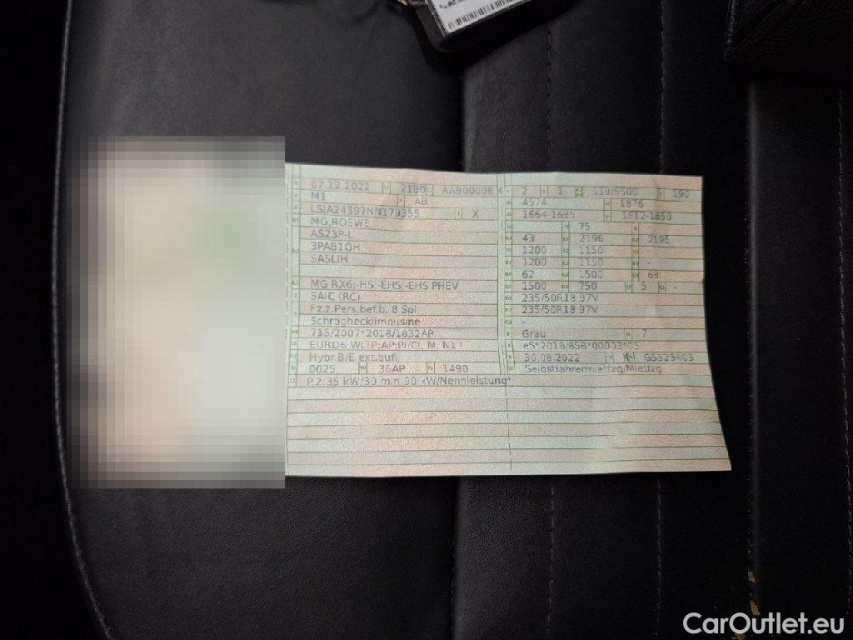 07.12.2022 2180 AAB00006 4 2 1 119/5500 190
M1 AB 4574 1876
X 1664-1685 1812-1853
MG,ROEWE 75
AS23P-L 43 2196 2196
3PAB1OH 1200 1150 -
SA5LIH 1200 1150 -
62 1500 68
MG RX6;-HS;-EHS;-EHS PHEV 1500 750 5 -
SAIC (RC) 235/50R18 97V
Fz.z.Pers.bef.b. 8 Spl. 235/50R18 97V
Schräghecklimousine -
715/2007*2018/1832AP Grau 7
EURO6 e5*2018/858*00003*05
Hybr.B/E ext.aufl. 30.08.2022 K GS325403
0025 36AP 1490 Selbstfahrermietfzg/Mietfzg
P.2:35 kW/30 min.90 kW/Nennleistung*
CarOutlet.eu